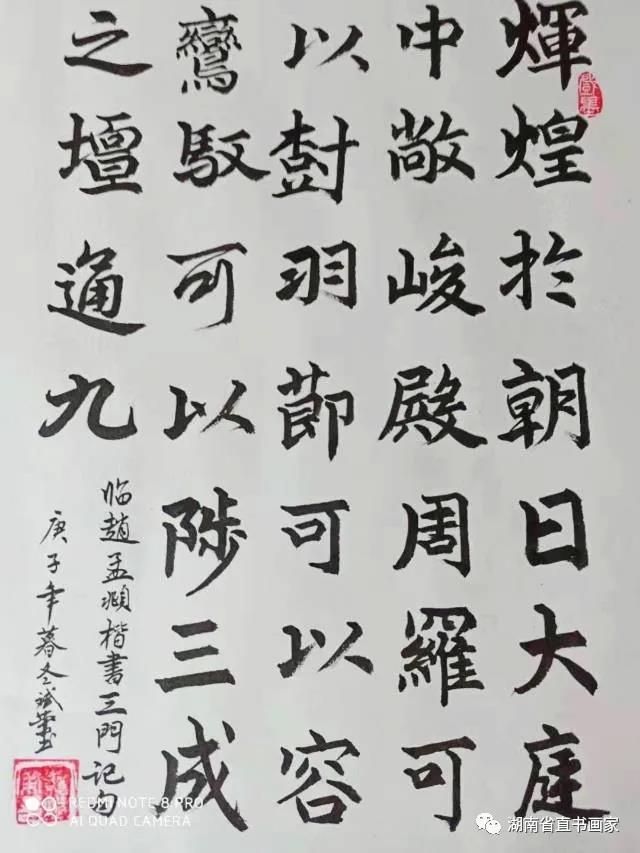 煇煌於朝日大庭
中敞峻殿周羅可
以尌羽莭可以容
鸞馭可以陟三成
之壇通九
临趙孟頫楷書三門记句
庚子年暮冬
REDMI NOTE 8 PRO
AI QUAD CAMERA
湖南省直书画家